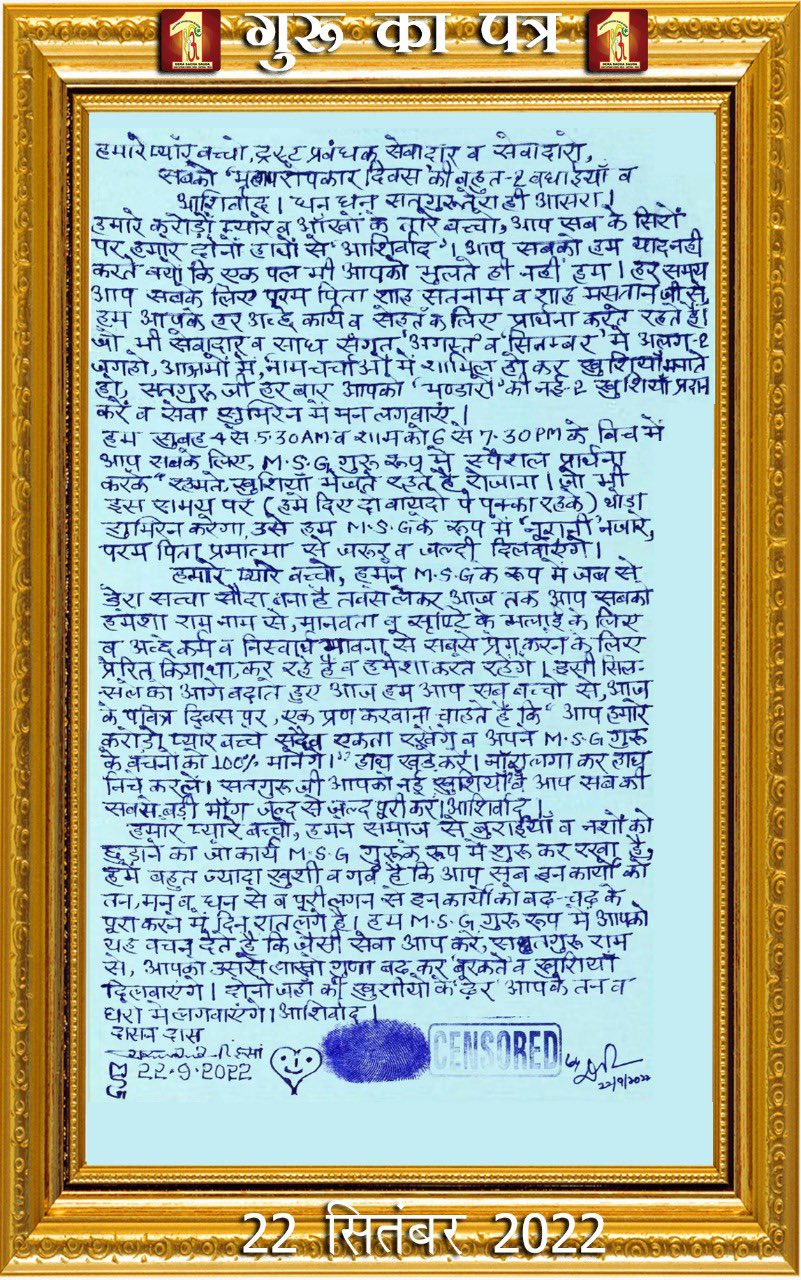 गुरु का पत्र
हमारे प्यारे बच्चो, ट्रस्ट प्रबंधक सेवादार व सेवादारो,
सबको "महापरोपकार दिवस" की बहुत-२ बधाईयाँ व
आशिर्वाद। धन धन सतगुरु तेरा ही आसरा।
हमारे करोड़ों प्यारे व आँखों के तारे बच्चो, आप सब के सिरों
पर हमारे दोनों हाथों से "आशिर्वाद"। आप सबको हम याद नही
करते क्यों कि एक पल भी आपको भुलते ही नही हम। हर समय
आप सबके लिए परम पिता शाह सतनाम व शाह मस्तान जी से
हम आपके हर अच्छे कार्य व सेहत के लिए प्रार्थना करते रहते है।
जो भी सेवादार व साध संगत 'अगस्त' व 'सितम्बर' में अलग-२
जगहो, आश्रमों में, नामचर्चाओं में शामिल हो कर खुशियाँ मनाते
हो, सतगुरु जी हर बार आपको 'भण्डारो' की नई-२ खुशियाँ प्रदान
करें व सेवा सुमिरन में मन लगवाएं।
हम सुबह 4 से 5.30 AM व शाम को 6 से 7.30 PM के बिच में
आप सबके लिए, M.S.G गुरु रूप में स्पैशल प्रार्थना
करके "रहमतें, खुशियाँ भेजते रहते है रोजाना। जो भी
इस समय पर (हमे दिए दो वायदो पे पक्का रहके) थोड़ा
सुमिरन करेगा, उसे हम M.S.G के रूप में "नूरानी" नजारे,
परम पिता प्रमात्मा से जरूर व जल्दी दिलवाएंगे।
हमारे प्यारे बच्चो, हमने M.S.G के रूप में जब से
डेरा सच्चा सौदा बना है तबसे लेकर आज तक आप सबको
हमेशा राम नाम से, मानवता व सृष्टि के भलाई के लिए
व अच्छे कर्म व निस्वार्थ भावना से सबसे प्रेम करने के लिए
प्रेरित किया था, कर रहे है व हमेशा करते रहेंगे। इसी सिल-
सिले को आगे बढ़ाते हुए आज हम आप सब बच्चो से, आज
के पवित्र दिवस पर, एक प्रण करवाना चाहते है कि "आप हमारे
करोड़ो प्यारे बच्चे सदैव एकता रखेंगे व अपने M.S.G गुरु
के वचनों को 100% मानेंगे।" हाथ खड़े करें। नारा लगा कर हाथ
निचे कर लें। सतगुरु जी आपको नई खुशियाँ दे आप सब की
सबसे बड़ी माँग जल्द से जल्द पुरी करें। आशिर्वाद।
हमारे प्यारे बच्चो, हमने समाज से बुराईयाँ व नशों को
छुड़ाने का जो कार्य M.S.G गुरु के रूप में शुरू कर रखा है,
हमें बहुत ज्यादा खुशी व गर्व है कि आप सब इन कार्यो को
तन, मन व धन से व पूरी लगन से इन कार्यो को बढ़-चढ़ के
पूरा करने में दिन रात लगे है। हम M.S.G गुरु रूप में आपको
यह वचन देते है कि जैसी सेवा आप करें, सतगुरु राम
से, आपको उससे लाखो गुणा बढ़ कर 'बरकतें व खुशियाँ
दिलवाएंगे। दोनों जहाँ की खुशीयों के ढेर आपके तन व
घरों में लगवाएंगे। आशिर्वाद।
दासन दास
MSG 22.9.2022
CENSORED
22/9/2022
22 सितंबर 2022